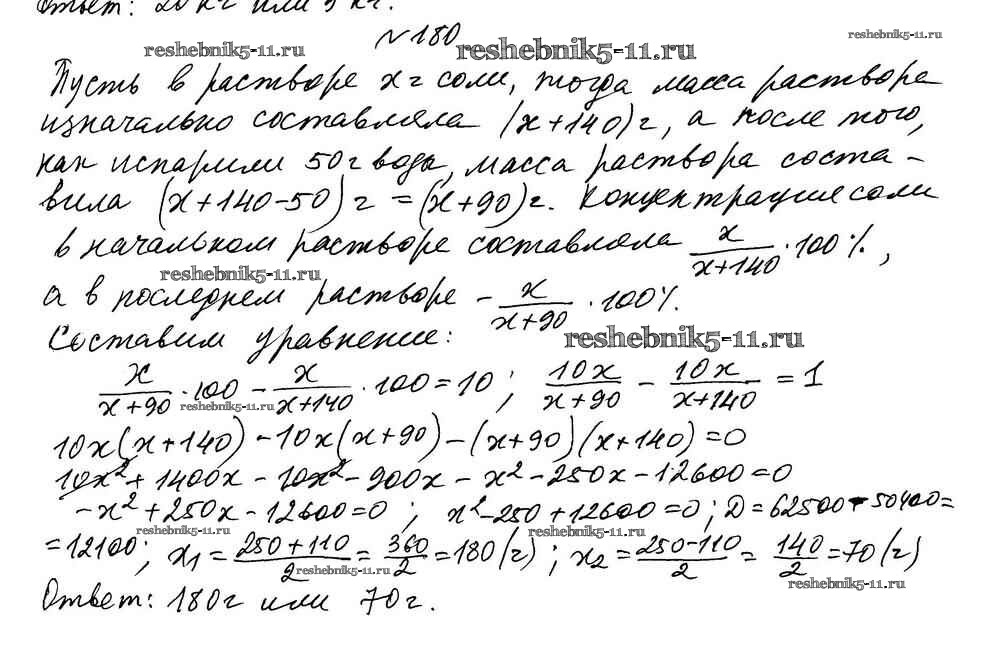 Ответ: 20 кг или 5 кг.
№180
reshebnik5-11.ru reshebnik5-11.ru reshebnik5-11.ru
Пусть в растворе x г соли, тогда масса раствора
изначально составляла (x+140)г, а после того,
как испарили 50 г воды, масса раствора соста-
вила (x+140-50) г = (x+90) г. Концентрация соли
в начальном растворе составляла x/(x+140) · 100%,
reshebnik5-11.ru
а в последнем растворе - x/(x+90) · 100%.
Составим уравнение:
reshebnik5-11.ru
x/(x+90) · 100 - x/(x+140) · 100 = 10; 10x/(x+90) - 10x/(x+140) = 1
reshebnik5-11.ru
10x(x+140) - 10x(x+90) - (x+90)(x+140) = 0
10x² + 1400x - 10x² - 900x - x² - 250x - 12600 = 0
-x² + 250x - 12600 = 0; x² - 250 + 12600 = 0; D = 62500 - 50400 =
reshebnik5-11.ru reshebnik5-11.ru
= 12100; x₁ = (250+110)/2 = 360/2 = 180 (г); x₂ = (250-110)/2 = 140/2 = 70 (г)
reshebnik5-11.ru reshebnik5-11.ru
Ответ: 180г или 70г.